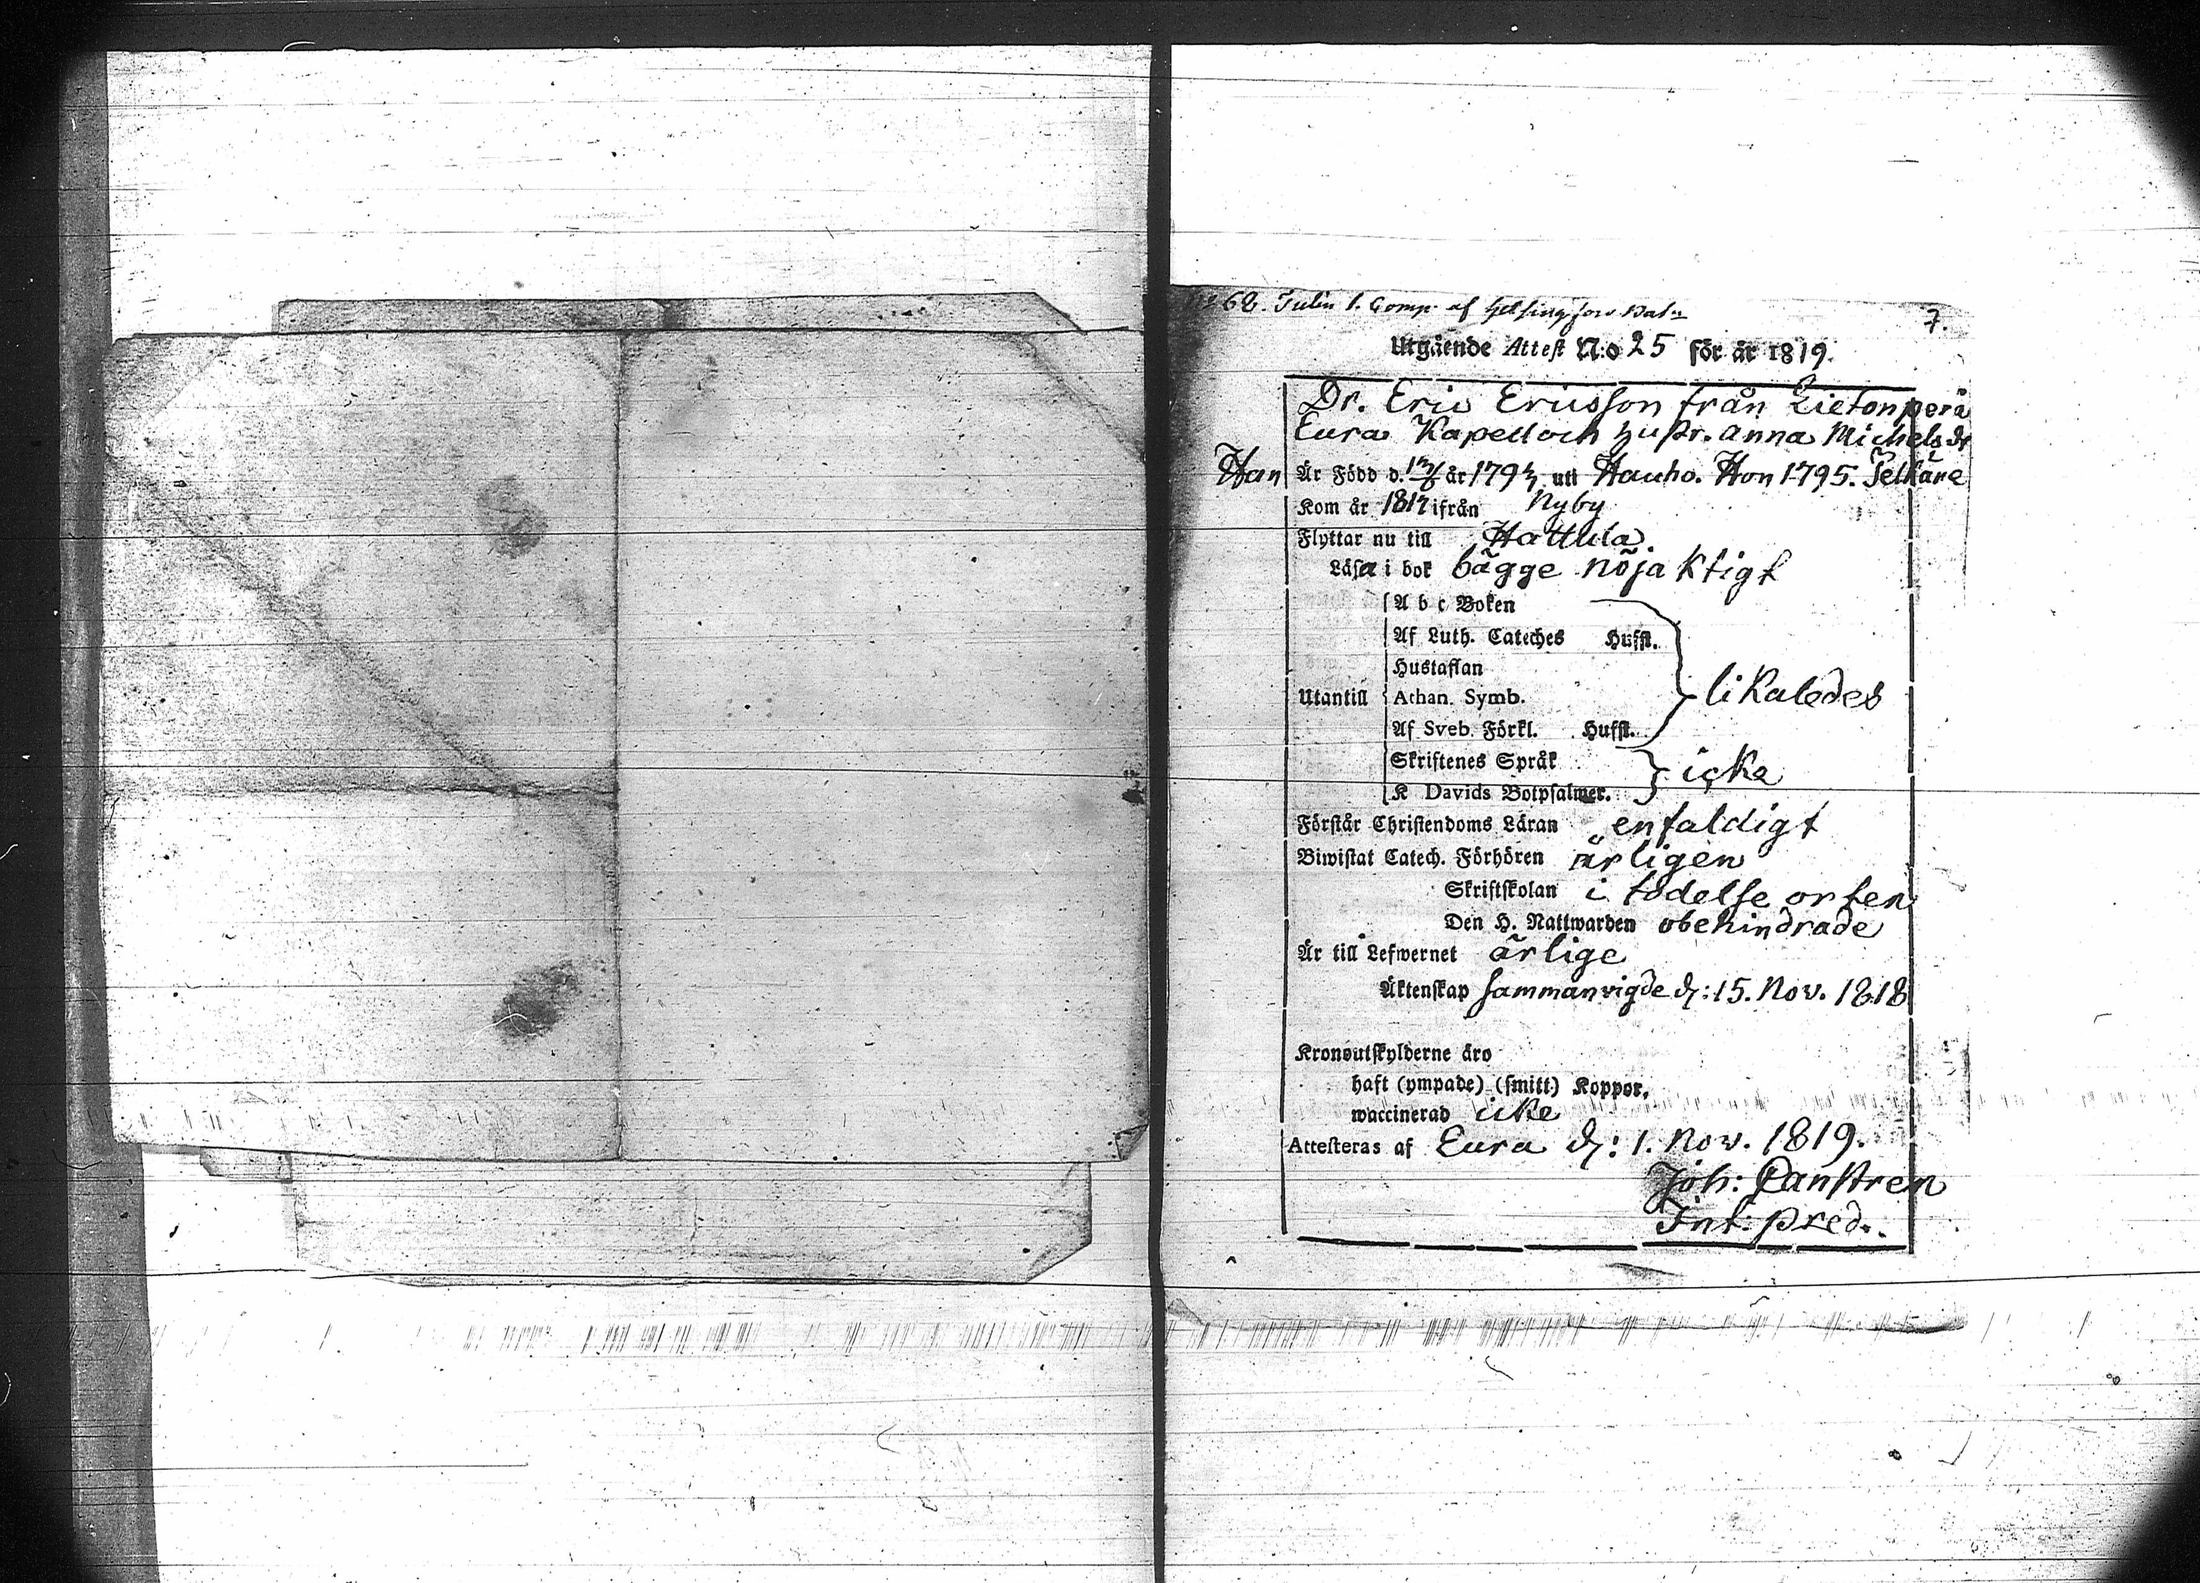 No 62. Julin 1. Comp. af Helsingfors Bat:n
7.
Utgående Attest N:o 25 för år 1819.
Dr. Eric Ericsson från Lietonperä
Eura Kapell och hustr. Anna Michelsdr
Han Är Född d. år 179 uti Hauho. Hon 1795. Selkäne
Kom år 1817 ifrån Nyby
Flyttar nu till Hattula
Läsa i bok bägge nöjaktigt
A b c Boken
Af Luth. Cateches Hufst.
Hustaflan
Utantill Athan. Symb. likaledes
Af Sveb. Förkl. Hufst.
Skriftenes Språk icke
K Davids Botpsalmer.
Förstår Christendoms Läran enfaldigt
Biwistat Catech. Förhören årligen
Skriftskolan i födelse orten
Den H. Nattwarden obehindrade
Är till Lefwernet ärlige
Äktenskap sammanvigde d: 15. Nov. 1818
Kronoutskylderne äro
haft (ympade) (smitt) Koppor.
waccinerad icke
Attesteras af Eura d: 1. Nov. 1819.
Joh: Panstren
Int: pred.